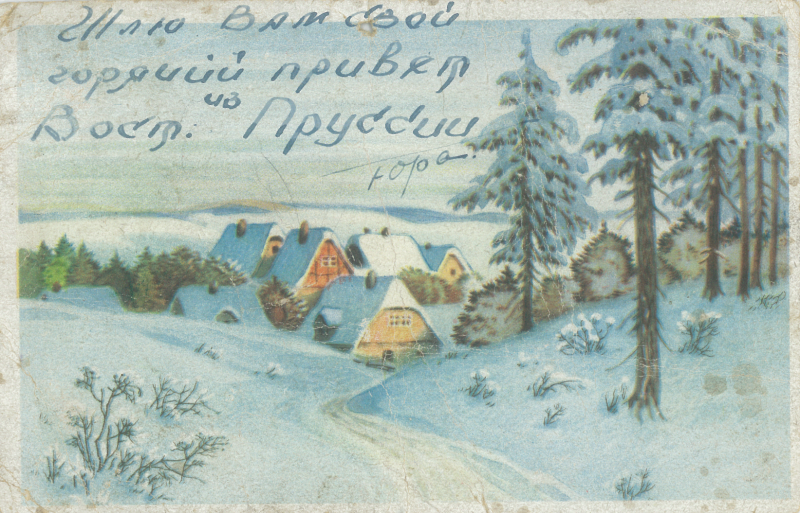 Шлю Вам свой
горячий привет
из
Вост. Пруссии
Юра.